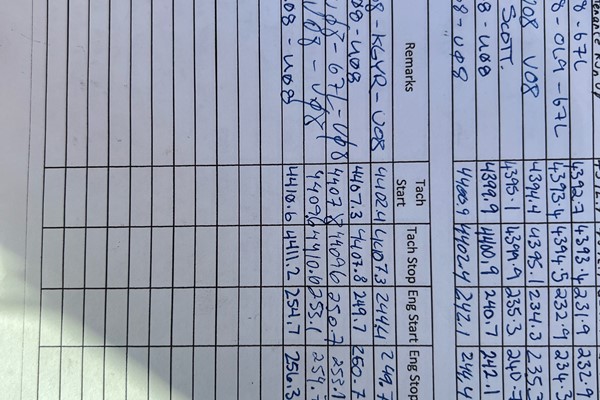 8 - 67L 4392.7 4393.4 231.9 232.9
8 - 0L9 - 67L 4393.4 4394.5 232.9 234.3
08 U08 4394.4 4395.1 234.3 235.3
SCOTT. 4395.1 4399.9 235.3 240.7
8 - U08 4399.9 4400.9 240.7 242.1
8 - U08 4400.9 4402.4 242.1 244.4
Remarks Tach Start Tach Stop Eng Start Eng Stop
08 - KGYR - U08 4402.4 4407.3 244.4 249.7
08 - U08 4407.3 4407.8 249.7 250.7
U08 - 67L - U08 4407.8 4409.6 250.7 253.1
U08 - U08 4409.6 4410.6 253.1 254.7
08 - U08 4410.6 4411.2 254.7 256.3